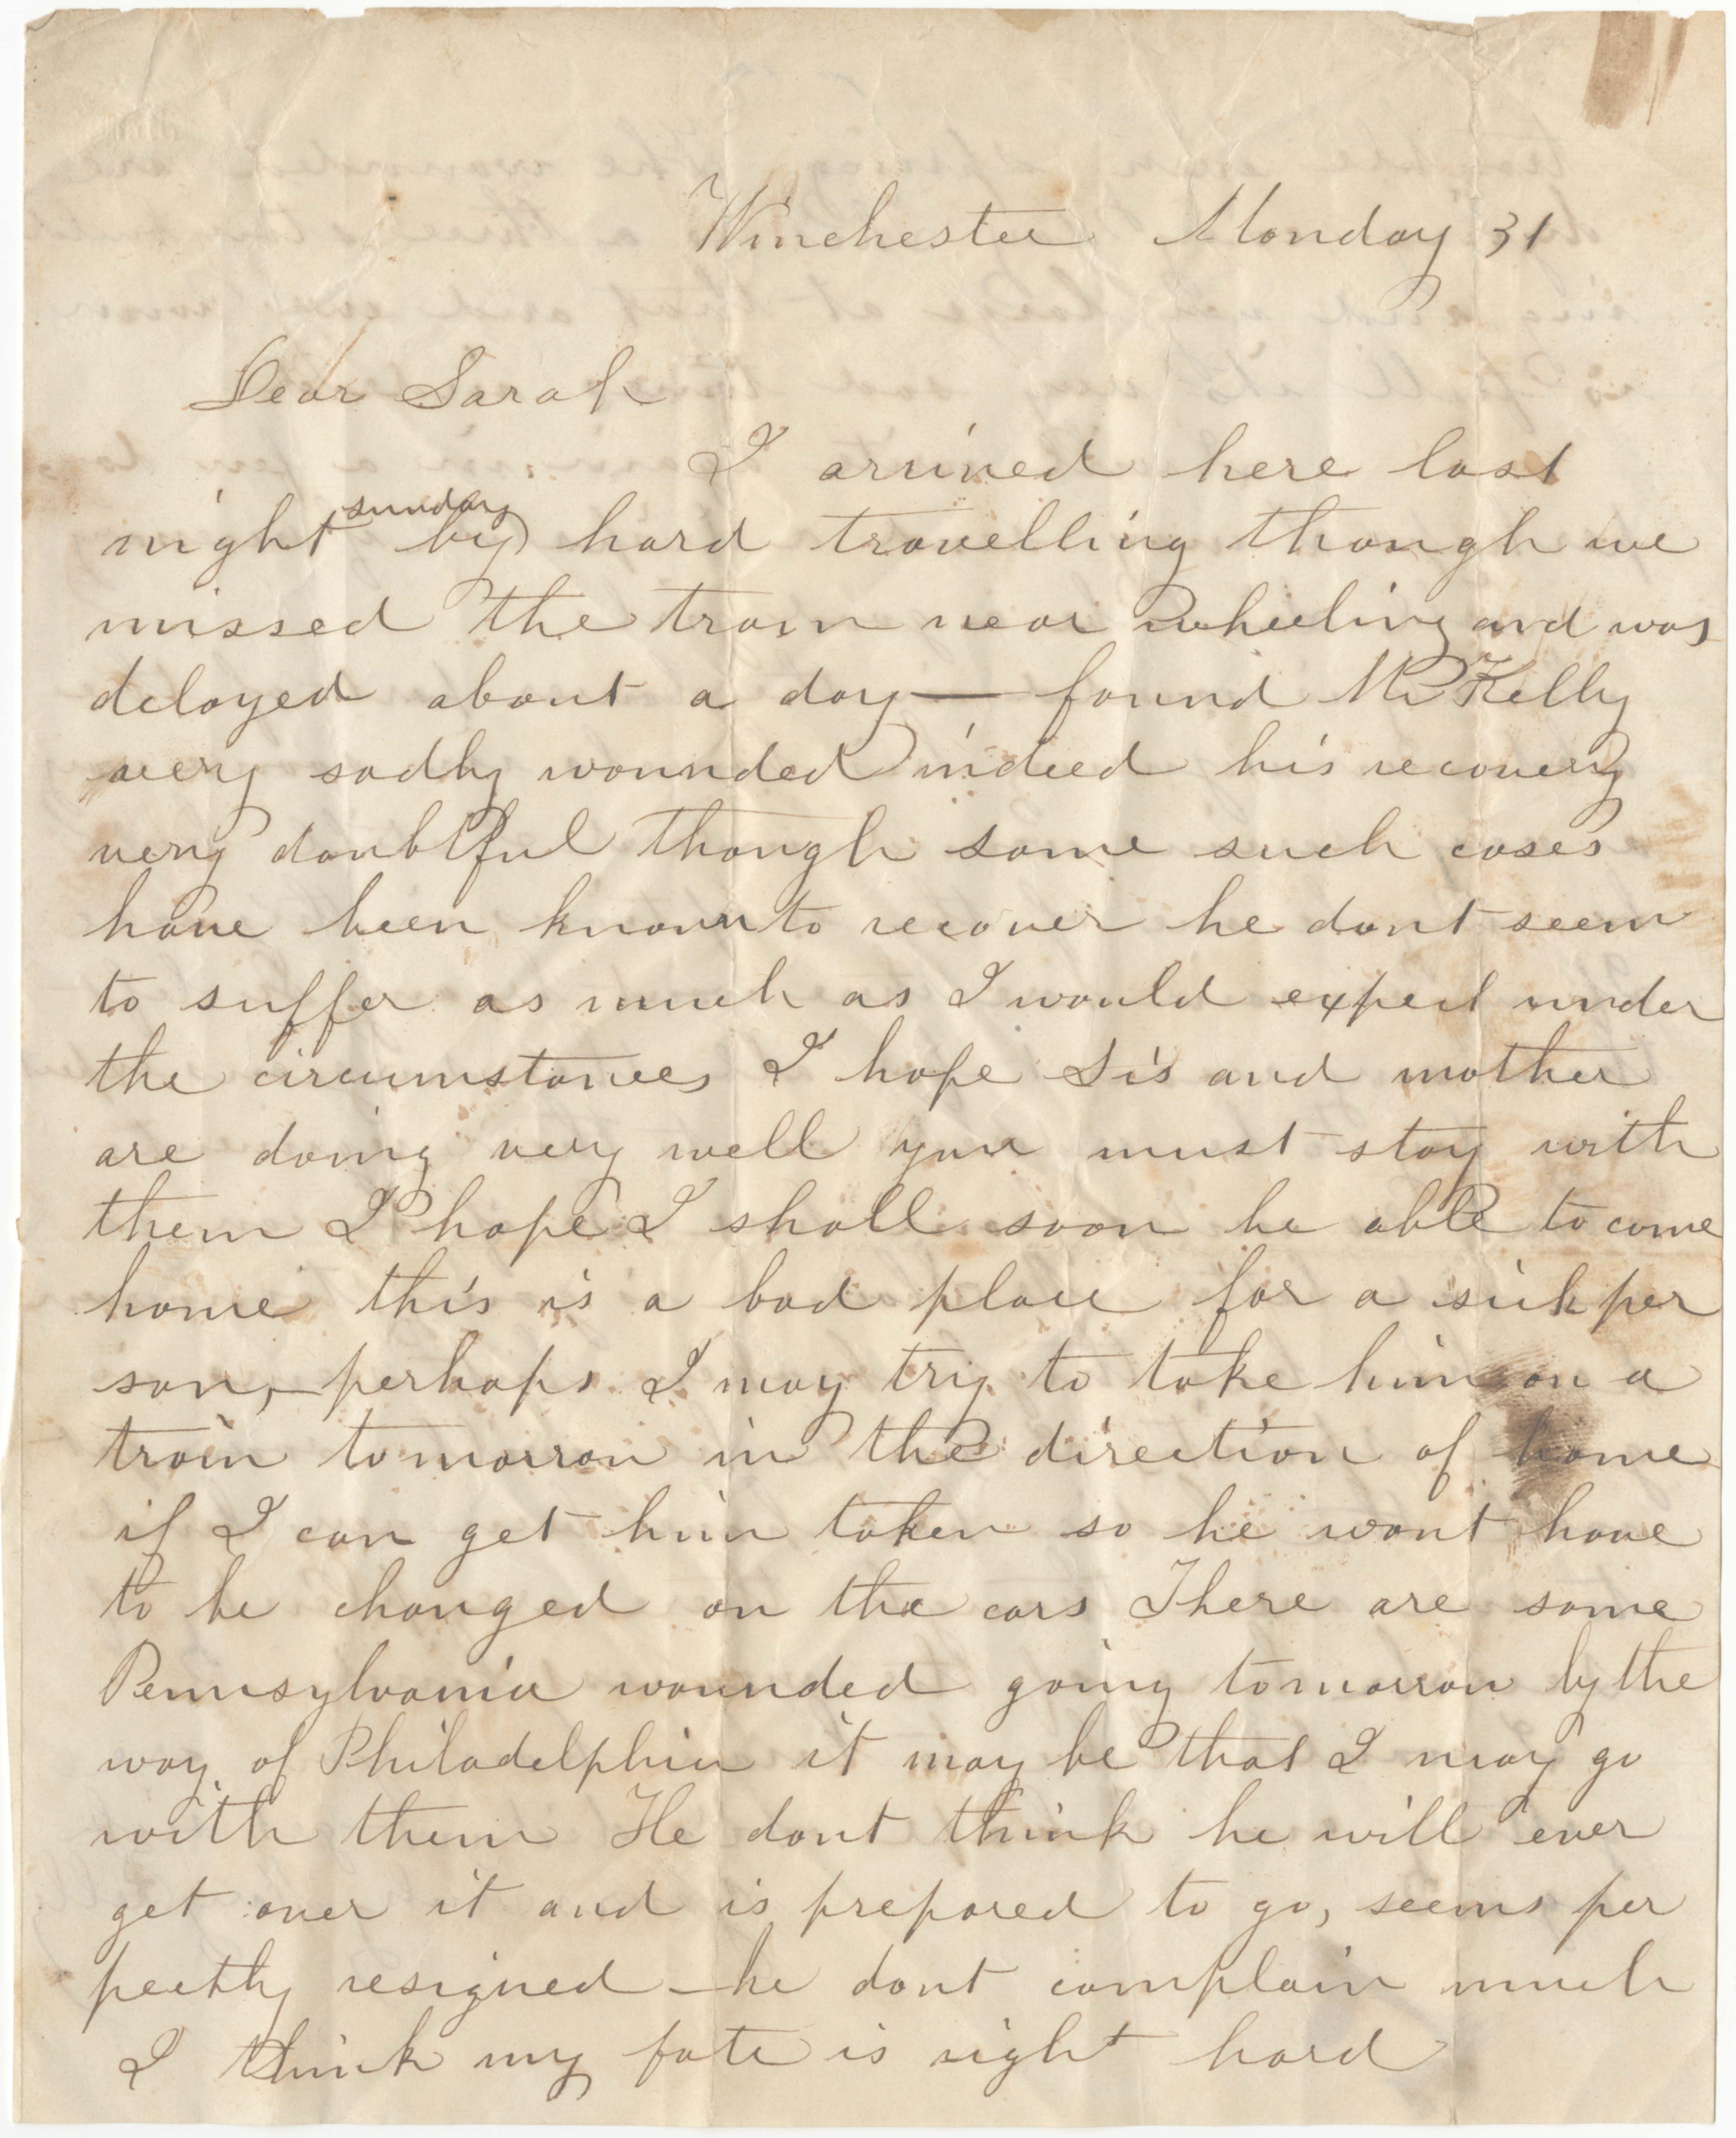 Winchester Monday 31
Dear Sarah
I arrived here last
night sunday by hard travelling though we
missed the train near wheeling and was
delayed about a day — found Mr Kelly
very sadly wounded indeed his recovery
very doubtful though some such cases
have been known to recover he dont seem
to suffer as much as I would expect under
the circumstances I hope Sis and mother
are doing very well you must stay with
them I hope I shall soon be able to come
home this is a bad place for a sick per
son, – perhaps I may try to take him on a
train tomorrow in the direction of home
if I can get him taken so he wont have
to be changed on the cars There are some
Pennsylvania wounded going tomorrow by the
way of Philadelphia it may be that I may go
with them He dont think he will ever
get over it and is prepared to go, seems per
fectly resigned – he dont complain much
I think my fate is right hard